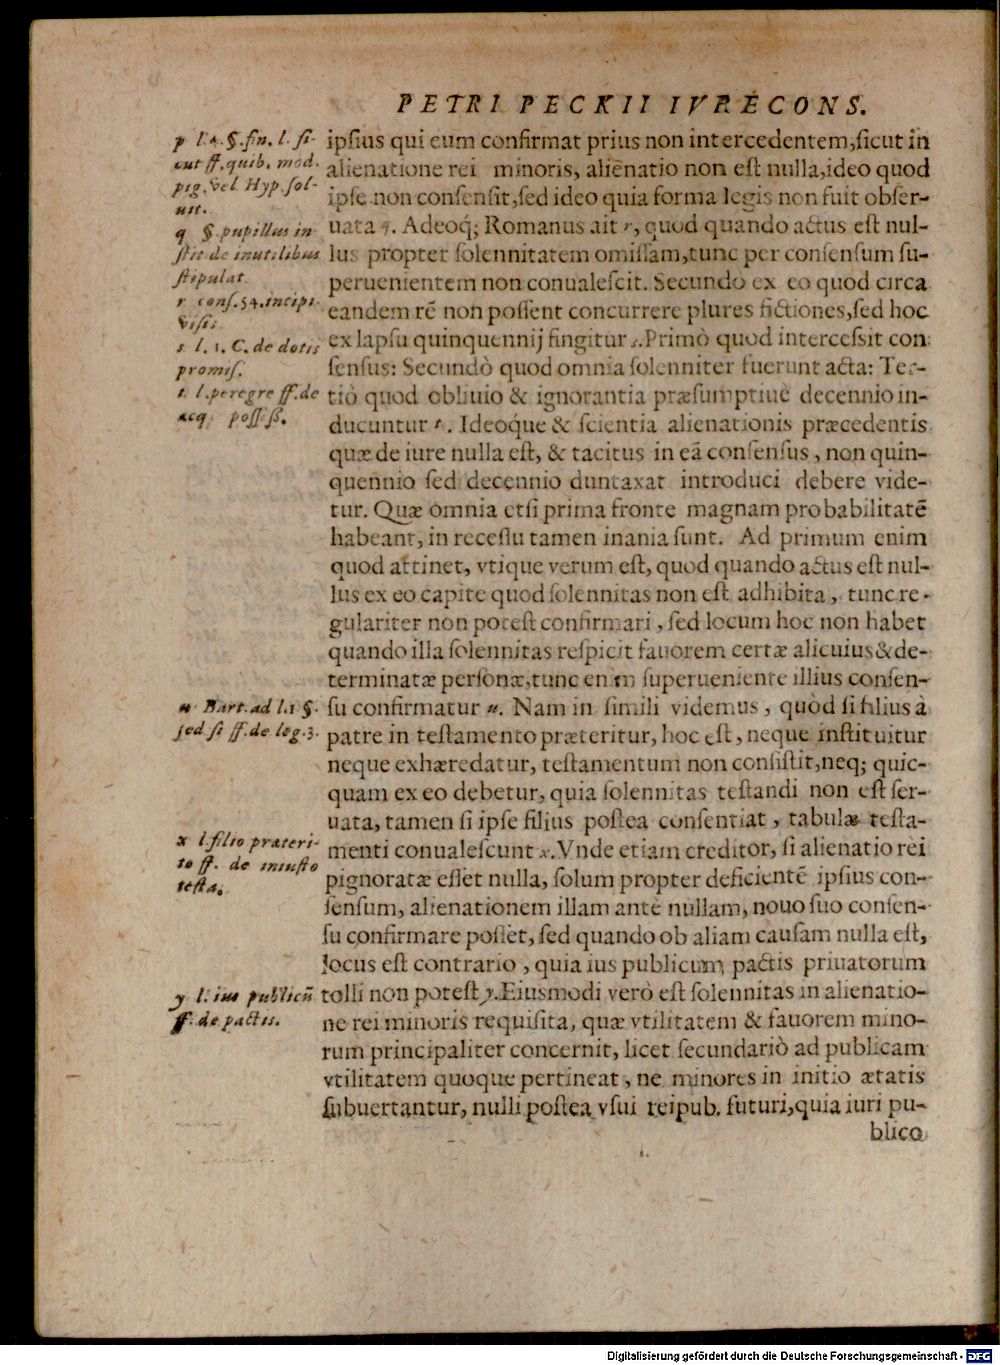 PETRI PECKII IVRECONS.
p l.4.§.fin. l. si-
cut ff.quib. mod.
pig.vel Hyp.sol-
uit.
q §.pupillus in-
stit de inutilibus
stipulat.
r cons.54.incipi.
Visis.
s l. 1. C. de dotis
promis.
t l.peregre ff.de
acq. poss.ss.
u Bart. ad l.1 §.
sed si ff.de leg.3.
x l.filio præteri-
to ff. de iniusto
testa.
y l. ius publicū
ff. de pactis.
ipsius qui eum confirmat prius non intercedentem,sicut in
alienatione rei minoris, alienatio non est nulla,ideo quod
ipse non consensit,sed ideo quia forma legis non fuit obser-
uata q. Adeoq́; Romanus ait r, quod quando actus est nul-
lus propter solennitatem omissam,tunc per consensum su-
peruenientem non conualescit. Secundò ex eo quod circa
eandem rē non possent concurrere plures fictiones,sed hoc
ex lapsu quinquennij fingitur s.Primò quod intercessit con
sensus: Secundò quod omnia solenniter fuerunt acta: Ter-
tiò quod obliuio & ignorantia præsumptiuè decennio in-
ducuntur t. Ideoque & scientia alienationis præcedentis
quæ de iure nulla est, & tacitus in eā consensus, non quin-
quennio sed decennio duntaxat introduci debere vide-
tur. Quæ omnia etsi prima fronte magnam probabilitatē
habeant, in recessu tamen inania sunt. Ad primum enim
quod attinet, vtique verum est, quod quando actus est nul-
lus ex eo capite quod solennitas non est adhibita, tunc re-
gulariter non potest confirmari, sed locum hoc non habet
quando illa solennitas respicit fauorem certæ alicuius & de-
terminatæ personæ,tunc enim superueniente illius consen-
su confirmatur u. Nam in simili videmus, quòd si filius à
patre in testamento præteritur, hoc est, neque instituitur
neque exhæredatur, testamentum non consistit,neq; quic-
quam ex eo debetur, quia solennitas testandi non est ser-
uata, tamen si ipse filius postea consentiat, tabulæ testa-
menti conualescunt x.Vnde etiam creditor, si alienatio rei
pignoratæ esset nulla, solum propter deficientē ipsius con-
sensum, alienationem illam antè nullam, nouo suo consen-
su confirmare posset, sed quando ob aliam causam nulla est,
locus est contrario, quia ius publicum pactis priuatorum
tolli non potest y.Eiusmodi verò est solennitas in alienatio-
ne rei minoris requisita, quæ vtilitatem & fauorem mino-
rum principaliter concernit, licet secundariò ad publicam
vtilitatem quoque pertineat, ne minores in initio ætatis
subuertantur, nulli postea vsui reipub. futuri,quia iuri pu-
blico
Digitalisierung gefördert durch die Deutsche Forschungsgemeinschaft - DFG